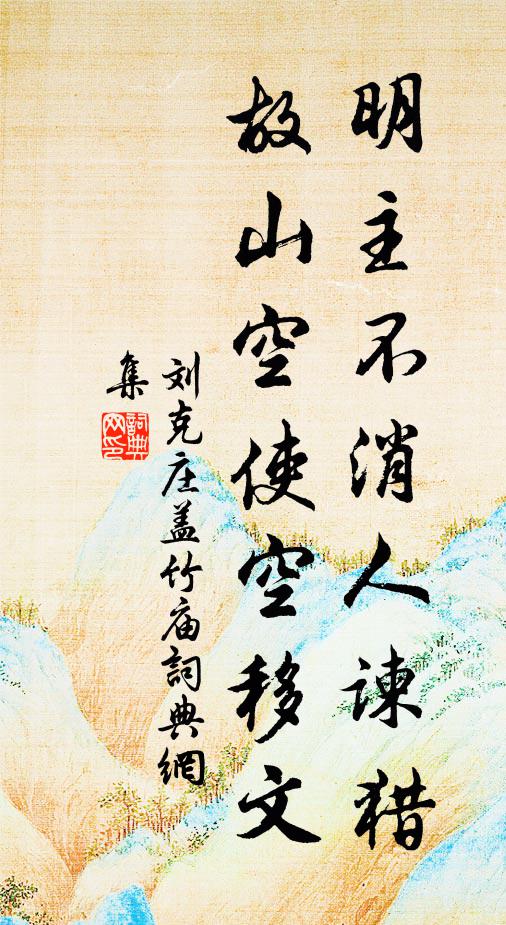 明主不消人谏猎
故山空使空移文
刘克庄盖竹庙詞典網
集
詞典
网印